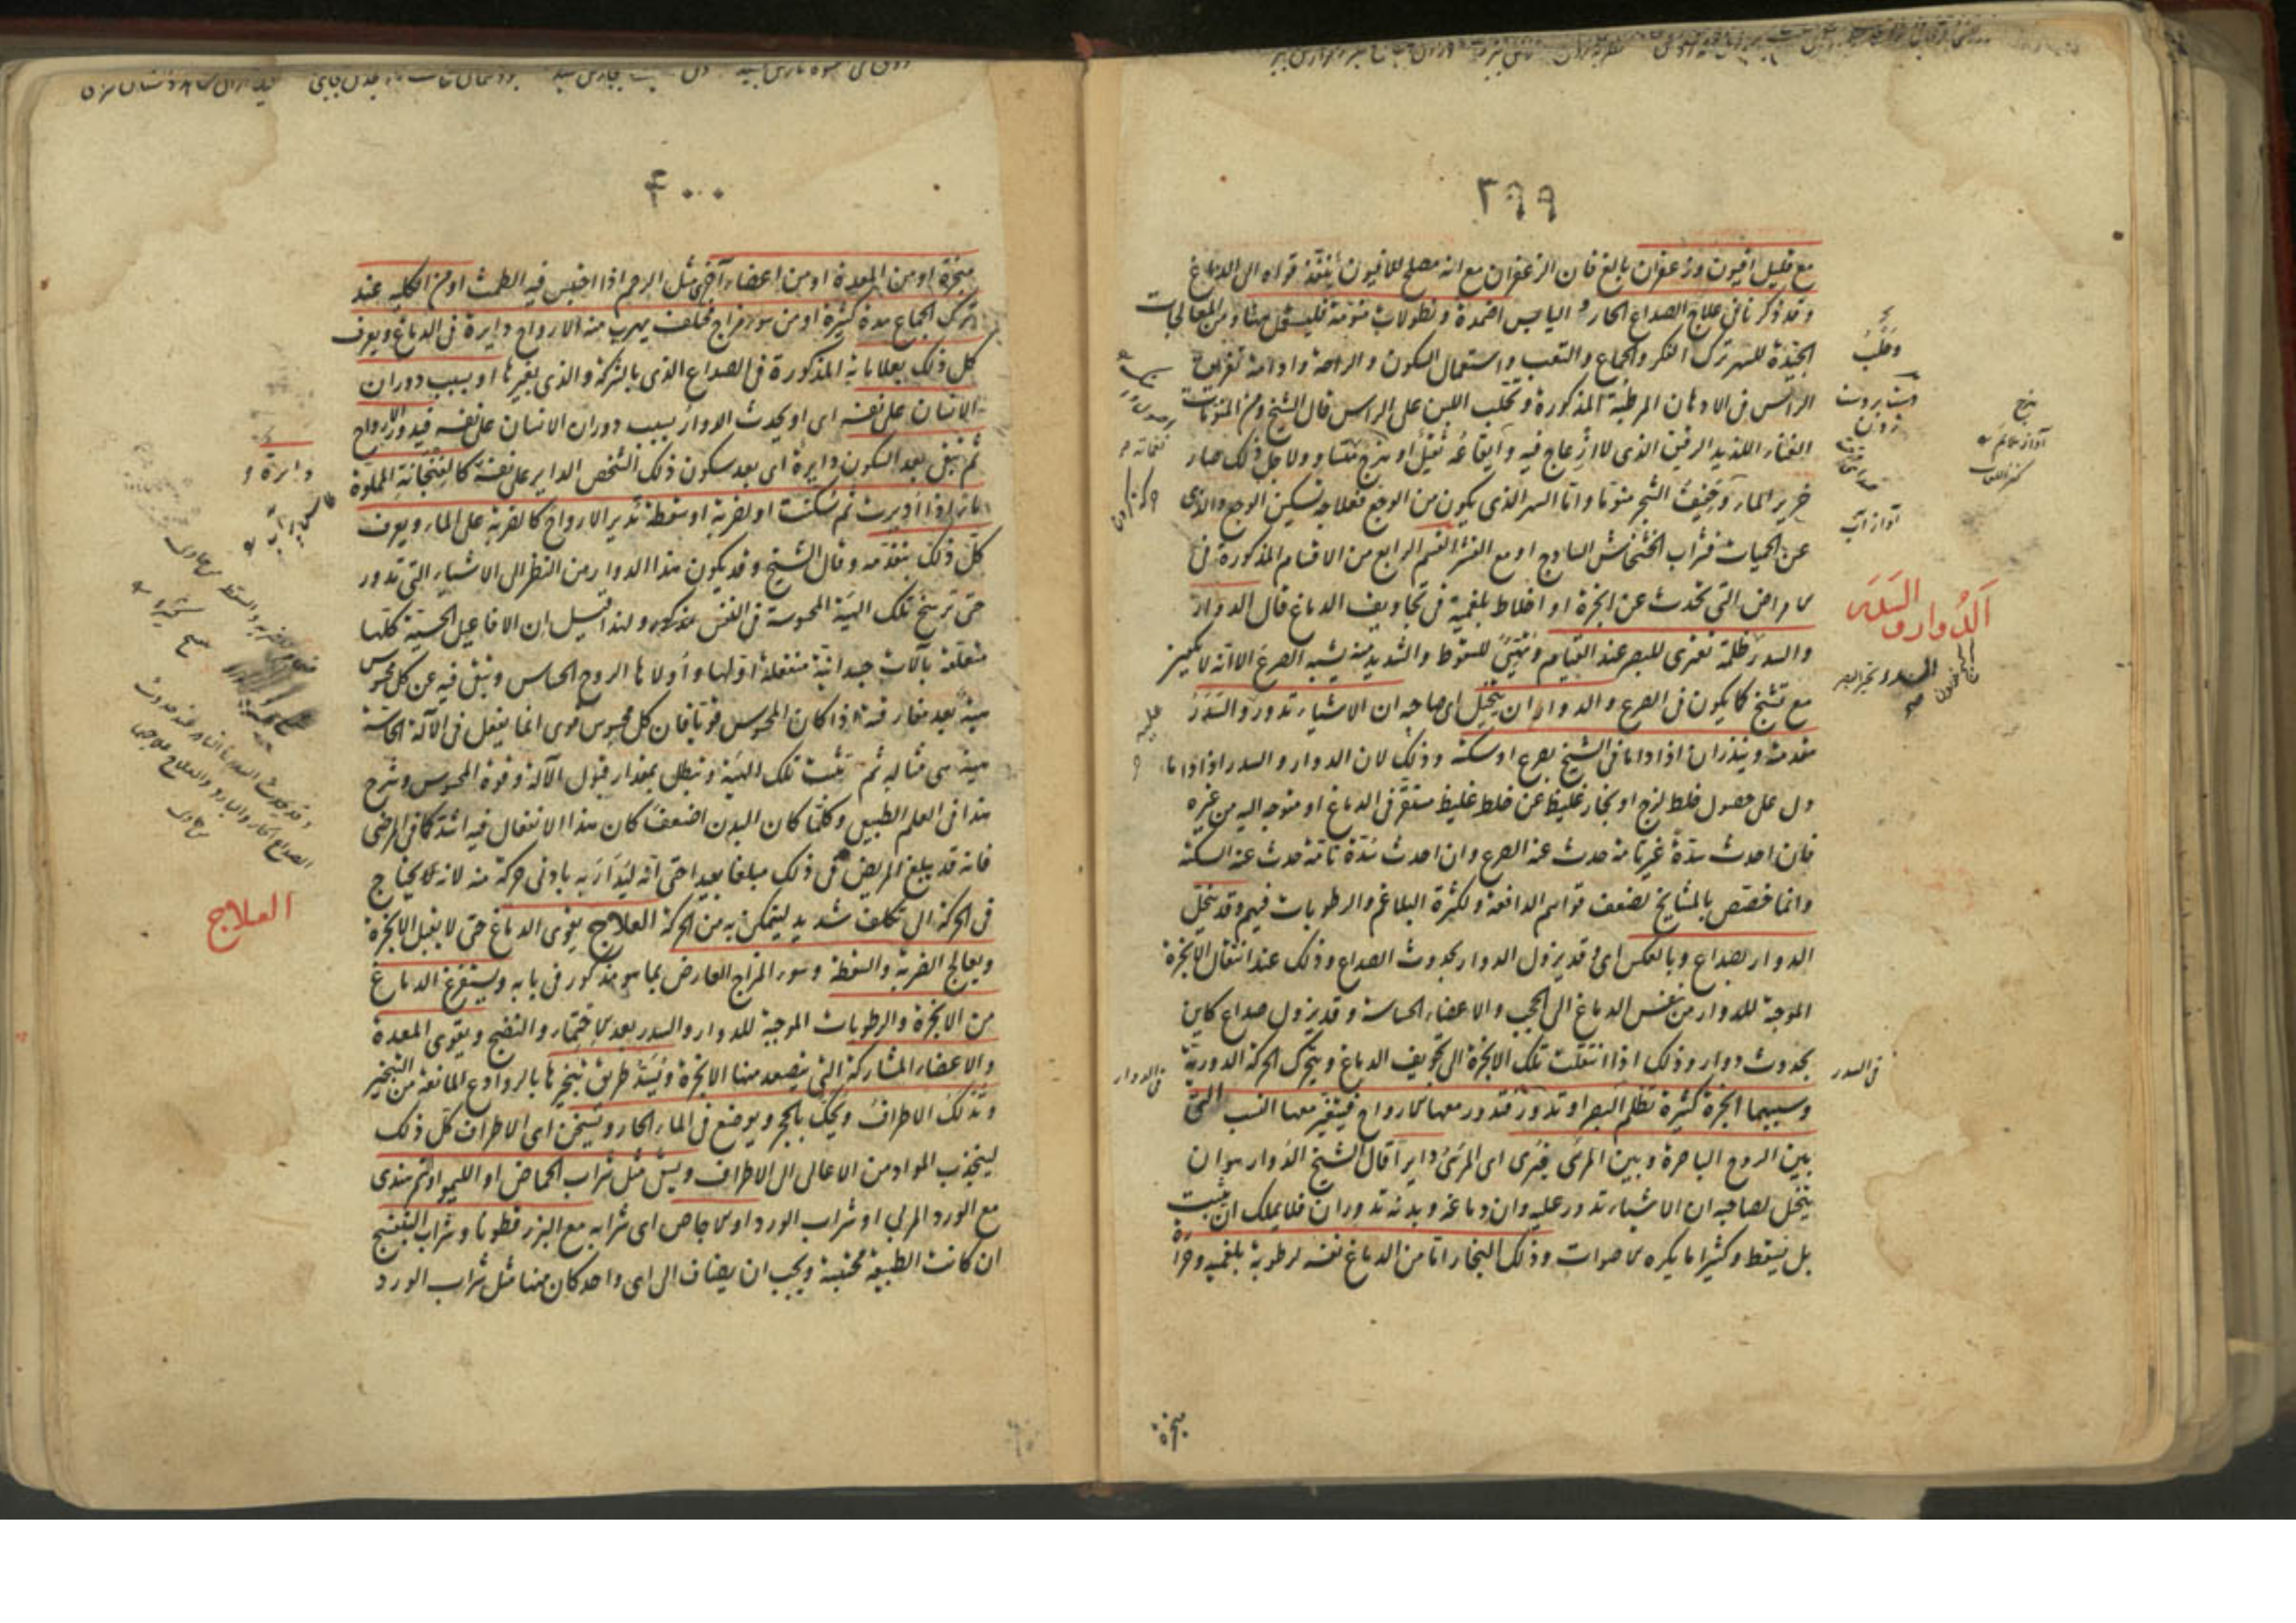 ٣٩٩
مع قليل افيون وزعفران بالغ فان الزعفران مع انه مصلح للافيون ينفذ قواه الى الدماغ
وقد ذكرنا فى علاج الصداع الحار و اليابس اضمدة ونطولات منومة فليستعمل ههنا ومن المعالجات
الجيدة للسهر ترك الفكر والجماع والتعب واستعمال السكون والراحة وادامة تغريق
الراس فى الادهان المرطبة المذكورة وتحلب اللبن على الراس قال الشيخ ومن المنومات
الغناء اللذيذ الرقيق الذى لا ازعاج فيه وايقاعه ثقيل او هزج متساو ولاجل ذلك صار
خرير الماء وحفيف الشجر منوما واما السهر الذى يكون من الوجع فعلاجه تسكين الوجع والذى
عن الحميات فشراب الخشخاش الساذج او مع البزر القسم الرابع من الاقسام المذكورة فى
الامراض التى تحدث عن ابخرة او اخلاط بلغمية فى تجاويف الدماغ قال الدوار
والسدر ظلمة تعترى للبصر عند القيام وتهيئ للسقوط والشديد منه يشبه الصرع الا انه لا يكون
مع تشنج كما يكون فى الصرع والدوار ان يتخيل اى صاحبه ان الاشياء تدور والسدر
مقدمته وينذران اذا داما فى الشيخ بصرع او سكتة وذلك لان الدوار والسدر اذا داما
دل على حصول خلط لزج او بخار غليظ عن خلط غليظ مستقر فى الدماغ او متوجه اليه من غيره
فان احدث سدة غير تامة حدث عنه الصرع وان احدث سدة تامة حدث عنه السكتة
وانما خصص بالمشايخ لضعف قواهم الدافعة ولكثرة البلاغم والرطوبات فيهم وقد ينحل
الدوار بصداع وبالعكس اى وقد يزول الدوار بحدوث الصداع وذلك عند انتقال الابخرة
الموجبة للدوار من نفس الدماغ الى الحجب والاعضاء الحساسة وقد يزول صداع كاين
بحدوث دوار وذلك اذا انتقلت تلك الابخرة الى تجويف الدماغ ويتحرك الحركة الدورية
وسببهما ابخرة كثيرة تظلم البصر او تدور فتدور معها الارواح فيتغير معها النسب التى
بين الروح الباصرة وبين المرئى فيرى اى المرئى دايرا قال الشيخ الدوار هو ان
يتخيل لصاحبه ان الاشياء تدور عليه وان دماغه وبدنه تدوران فلا يملك ان يثبت
بل يسقط وكثيرا ما يكره الاصوات وذلك البخار اما من الدماغ نفسه لرطوبة بلغمية وحرارة
الدوار والسدر
فى السدر
فى الدوار
٤٠٠
مبخرة او من المعدة او من اعضاء اخرى مثل الرحم اذا احتبس فيه الطمث او من الكلية عند
ترك الجماع مدة كثيرة او من سوء مزاج مختلف يهرب منه الارواح دايرة فى الدماغ ويعرف
كل ذلك بعلاماته المذكورة فى الصداع الذى بالشركة والذى بغيرها او بسبب دوران
الانسان على نفسه اى او يحدث الدوار بسبب دوران الانسان على نفسه فيدور الارواح
ثم تبقى بعد السكون دايرة اى بعد سكون ذلك الشخص الداير على نفسه كالفنجانة المملوة
ماء اذا اديرت ثم سكنت او لضربة او سقطة تدير الارواح كالضربة على الماء ويعرف
كل ذلك بتقدمه وقال الشيخ وقد يكون هذا الدوار من النظر الى الاشياء التى تدور
حتى ترسخ تلك الهيئة المحسوسة فى النفس مذكوره ولهذا قيل ان الافاعيل الحسية كلها
متعلقة بآلات جسدانية منفعلة اولها واولاها الروح الحساس وتبقى فيه عن كل محسوس
هيئة بعد مفارقته اذا كان المحسوس قويا فان كل محسوس قوى انما يفعل فى الآلة الحاسة
هيئة هى مثاله ثم تثبت تلك الهيئة وتبطل بمقدار قبول الآلة وقوة المحسوس وشرح
هذا فى العلم الطبيعى وكلما كان البدن اضعف كان هذا الانفعال فيه اشد كما فى المرضى
فانه قد يبلغ المريض فى ذلك مبلغا بعيدا حتى انه ليدار به بادنى حركة منه لانه لا يحتاج
فى الحركة الى تكلف شديد ليتمكن به من الحركة العلاج يقوى الدماغ حتى لا يقبل الابخرة
ويعالج الضربة والسقطة وسوء المزاج العارض بما هو مذكور فى بابه ويستفرغ الدماغ
من الابخرة والرطوبات الموجبة للدوار والسدر بعد الاختمار والنضج ويقوى المعدة
والاعضاء المشاركة التى يتصعد منها الابخرة ويسد طريق تبخيرها بالروادع المانعة من التبخير
وتدلك الاطراف ويحك بالحجر ويوضع فى الماء الحار وتسخن اى الاطراف كل ذلك
لينجذب المواد من الاعالى الى الاطراف ويسقى مثل شراب الحماض او الليمو او تمر هندى
مع الورد المربى او شراب الورد او الاجاص اى شرابه مع البزر قطونا وشراب البنفسج
ان كانت الطبيعة محتبسة ويجب ان يضاف الى اى واحد كان منها مثل شراب الورد
العلاج